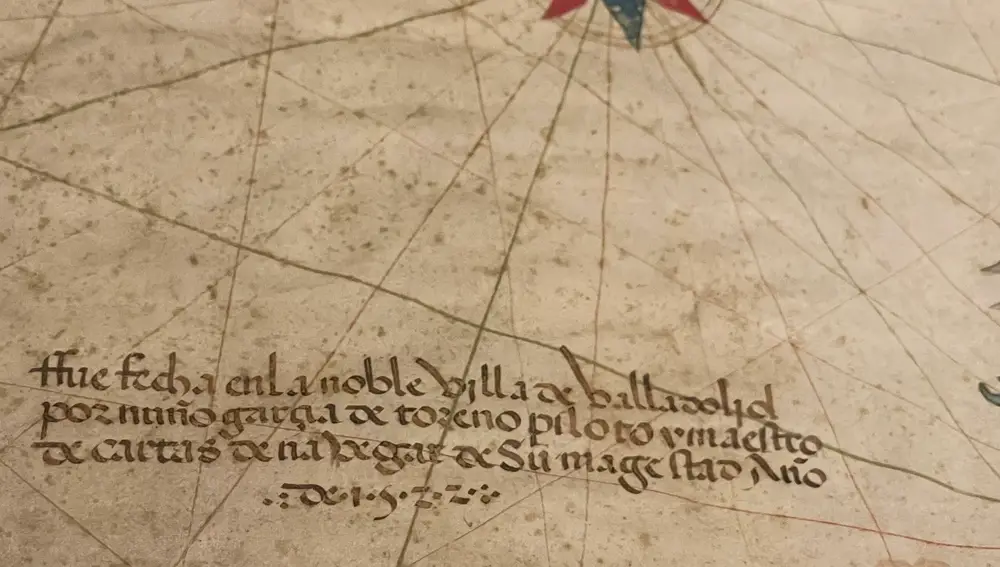 ffue fecha en la noble villa de valladolid
por nuño garçia de toreno piloto y maestro
de cartas de navegar de Su magestad Año
.:De·1·5·2·2·:·